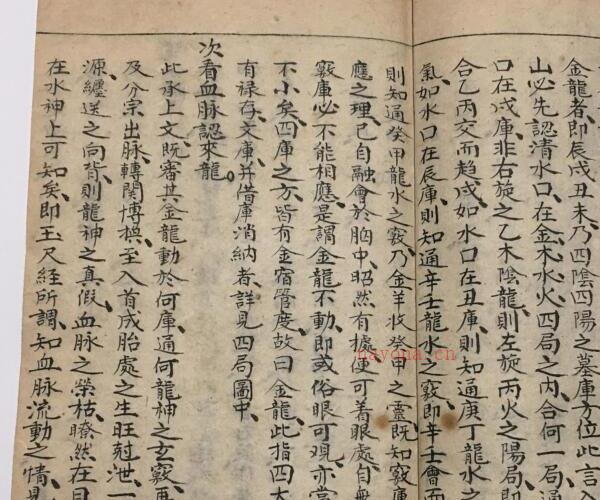 金龍者、即辰戌丑未、乃四陰四陽之墓庫方位、此言入
山必先認清水口、在金木水火四局之內、合何一局
口在戌庫、非右旋之乙木陰龍、則左旋丙火之陽局、即
合乙丙交而趋戌、如水口在丑庫、則知通庚丁龍水之
氣、如水口在辰庫、則知通辛壬龍水之竅、即辛壬會而
則知通癸甲龍水之竅、乃金羊收癸甲之靈、既知竅庫
應之理、已自融會於胸中、昭然有據、便可着眼處、自無
竅庫必不能相應、是謂金龍不動、即或俗眼可观、亦當
不小矣、四庫之方、皆有金宿管度、故曰金龍、此指四大
有禄存、文庫、并借庫消納者、詳見四局圖中、
次看血脉認來龍。
此承上文、既審其金龍動於何庫、通何龍神之玄竅、再
及分宗出脉、轉関博換、至入首成胎處之生旺 泄、一
源、纏送之向背、則龍神之真假、血脉之榮枯、瞭然在目
在水神上可知矣、即玉尺經所謂、知血脉流動之情
nayona.cn